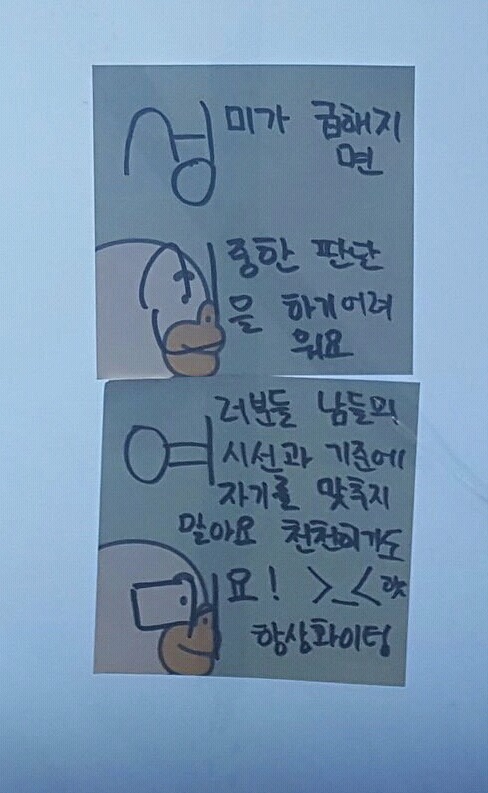 성 미가 급해지
면
신 중한 판단
을 하기어려
워요
여 러분들 남들의
시선과 기준에
자기를 맞추지
말아요 천천히가도
대 요! >_<
항상화이팅